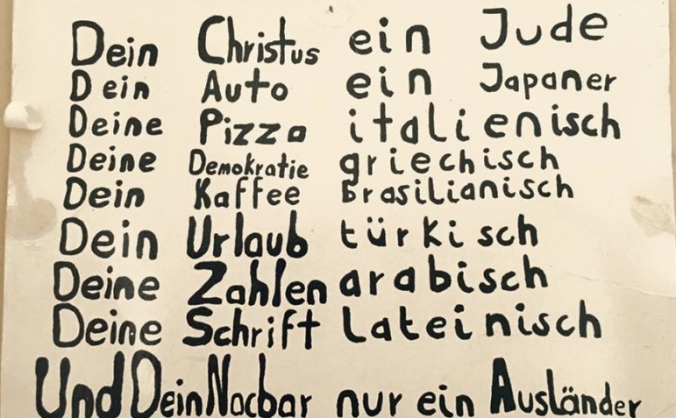 Dein Christus ein Jude
Dein Auto ein Japaner
Deine Pizza italienisch
Deine Demokratie griechisch
Dein Kaffee Brasilianisch
Dein Urlaub türkisch
Deine Zahlen arabisch
Deine Schrift Lateinisch
Und Dein Nacbar nur ein Ausländer